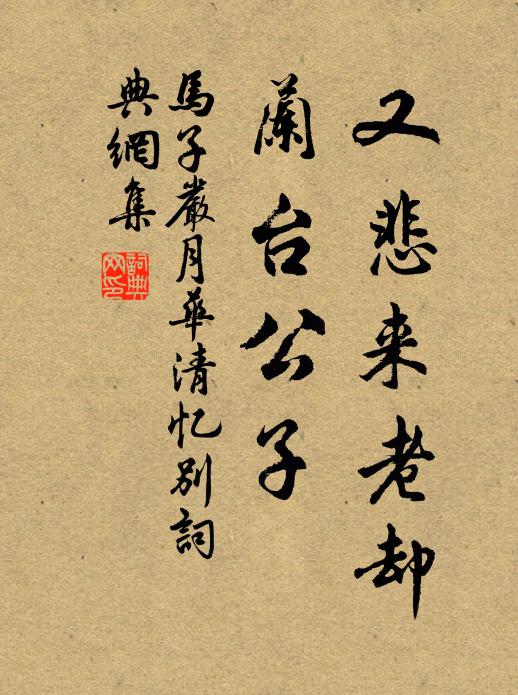 又悲来老却
蘭台公子
馬子嚴月華清忆别詞
典網集
詞典網印